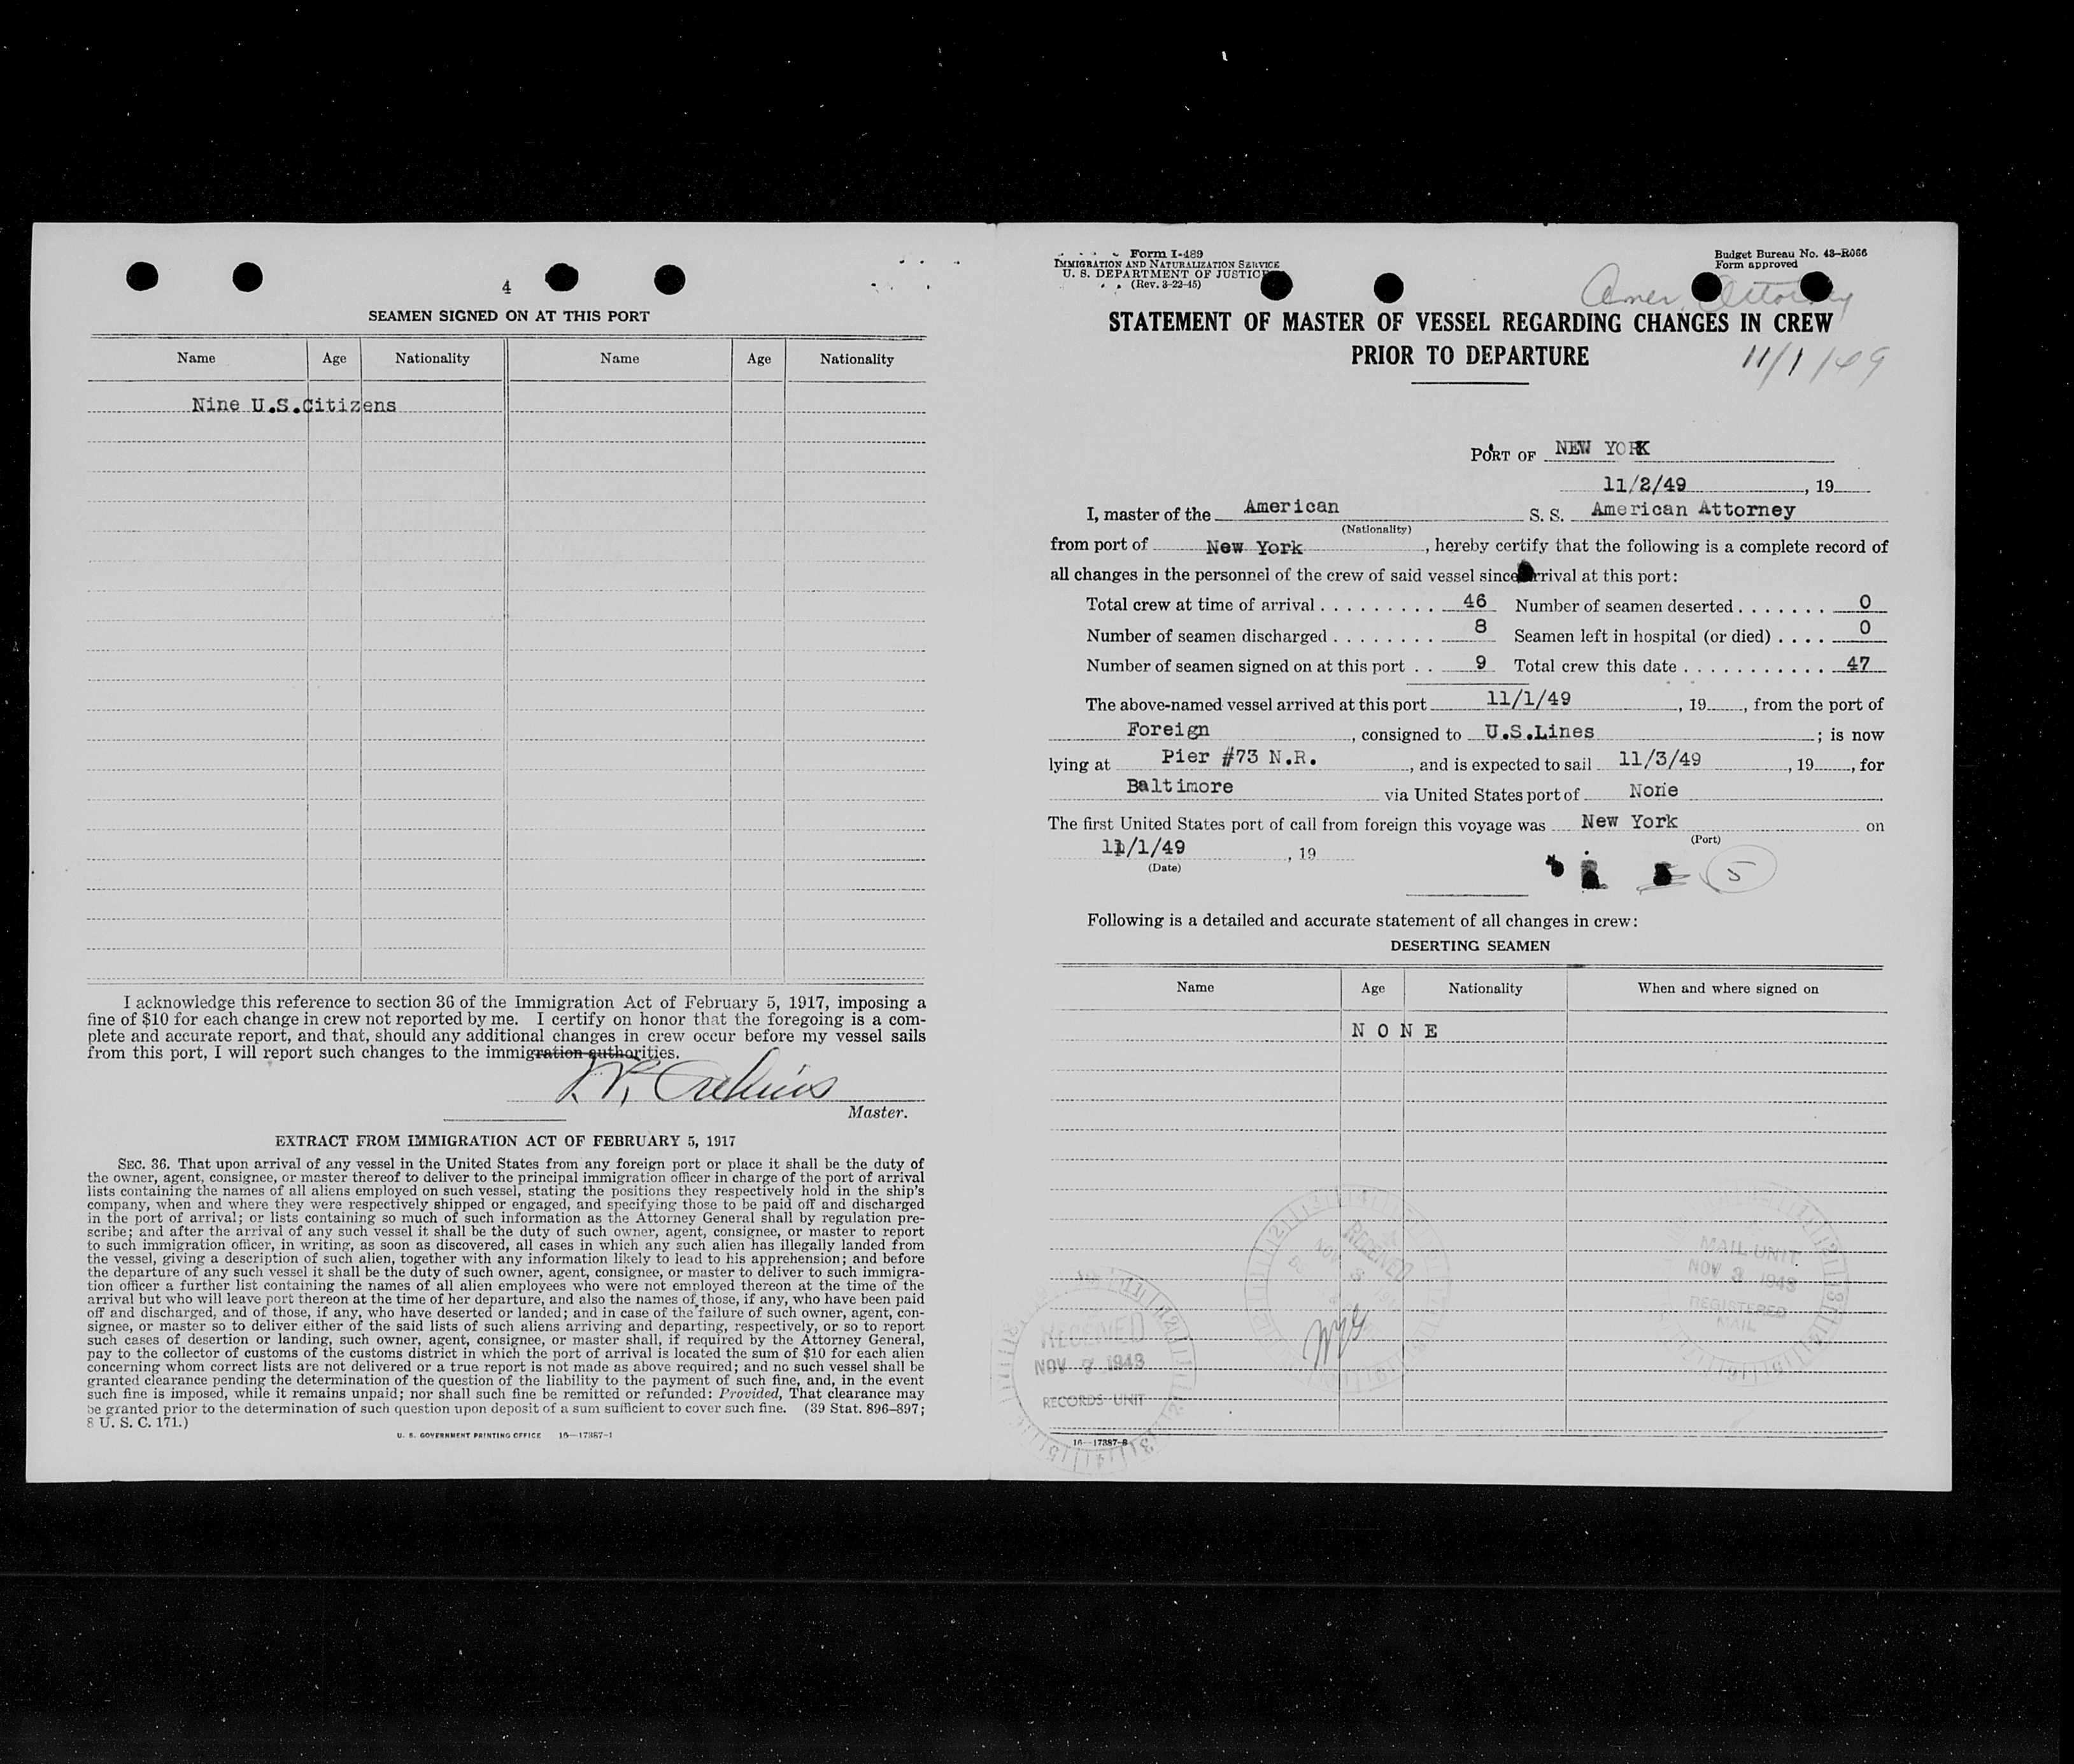 4
SEAMEN SIGNED ON AT THIS PORT
Name Age Nationality Name Age Nationality
Nine U.S.Citizens
I acknowledge this reference to section 36 of the Immigration Act of February 5, 1917, imposing a
fine of $10 for each change in crew not reported by me. I certify on honor that the foregoing is a com-
plete and accurate report, and that, should any additional changes in crew occur before my vessel sails
from this port, I will report such changes to the immigration authorities.
Master.
EXTRACT FROM IMMIGRATION ACT OF FEBRUARY 5, 1917
SEC. 36. That upon arrival of any vessel in the United States from any foreign port or place it shall be the duty of
the owner, agent, consignee, or master thereof to deliver to the principal immigration officer in charge of the port of arrival
lists containing the names of all aliens employed on such vessel, stating the positions they respectively hold in the ship's
company, when and where they were respectively shipped or engaged, and specifying those to be paid off and discharged
in the port of arrival; or lists containing so much of such information as the Attorney General shall by regulation pre-
scribe; and after the arrival of any such vessel it shall be the duty of such owner, agent, consignee, or master to report
to such immigration officer, in writing, as soon as discovered, all cases in which any such alien has illegally landed from
the vessel, giving a description of such alien, together with any information likely to lead to his apprehension; and before
the departure of any such vessel it shall be the duty of such owner, agent, consignee, or master to deliver to such immigra-
tion officer a further list containing the names of all alien employees who were not employed thereon at the time of the
arrival but who will leave port thereon at the time of her departure, and also the names of those, if any, who have been paid
off and discharged, and of those, if any, who have deserted or landed; and in case of the failure of such owner, agent, con-
signee, or master so to deliver either of the said lists of such aliens arriving and departing, respectively, or so to report
such cases of desertion or landing, such owner, agent, consignee, or master shall, if required by the Attorney General,
pay to the collector of customs of the customs district in which the port of arrival is located the sum of $10 for each alien
concerning whom correct lists are not delivered or a true report is not made as above required; and no such vessel shall be
granted clearance pending the determination of the question of the liability to the payment of such fine, and, in the event
such fine is imposed, while it remains unpaid; nor shall such fine be remitted or refunded: Provided, That clearance may
be granted prior to the determination of such question upon deposit of a sum sufficient to cover such fine. (39 Stat. 896-897;
8 U. S. C. 171.)
U. S. GOVERNMENT PRINTING OFFICE 16—17387-1
Form I-489
IMMIGRATION AND NATURALIZATION SERVICE
U. S. DEPARTMENT OF JUSTICE
(Rev. 3-22-45)
Budget Bureau No. 43-R066
Form approved
Amer. Attorney
STATEMENT OF MASTER OF VESSEL REGARDING CHANGES IN CREW
PRIOR TO DEPARTURE
11/1/49
PORT OF NEW YORK
11/2/49, 19
I, master of the American S. S. American Attorney
(Nationality)
from port of New York, hereby certify that the following is a complete record of
all changes in the personnel of the crew of said vessel since arrival at this port:
Total crew at time of arrival 46 Number of seamen deserted 0
Number of seamen discharged 8 Seamen left in hospital (or died) 0
Number of seamen signed on at this port 9 Total crew this date 47
The above-named vessel arrived at this port 11/1/49, 19, from the port of
Foreign, consigned to U.S.Lines; is now
lying at Pier #73 N.R., and is expected to sail 11/3/49, 19, for
Baltimore via United States port of None
The first United States port of call from foreign this voyage was New York on
(Port)
11/1/49, 19
(Date)
5
Following is a detailed and accurate statement of all changes in crew:
DESERTING SEAMEN
Name Age Nationality When and where signed on
NONE
RECEIVED
NOV
MAIL UNIT
NOV 3 1949
REGISTERED
MAIL
RECEIVED
NOV 7 1949
RECORDS UNIT
16—17387-2